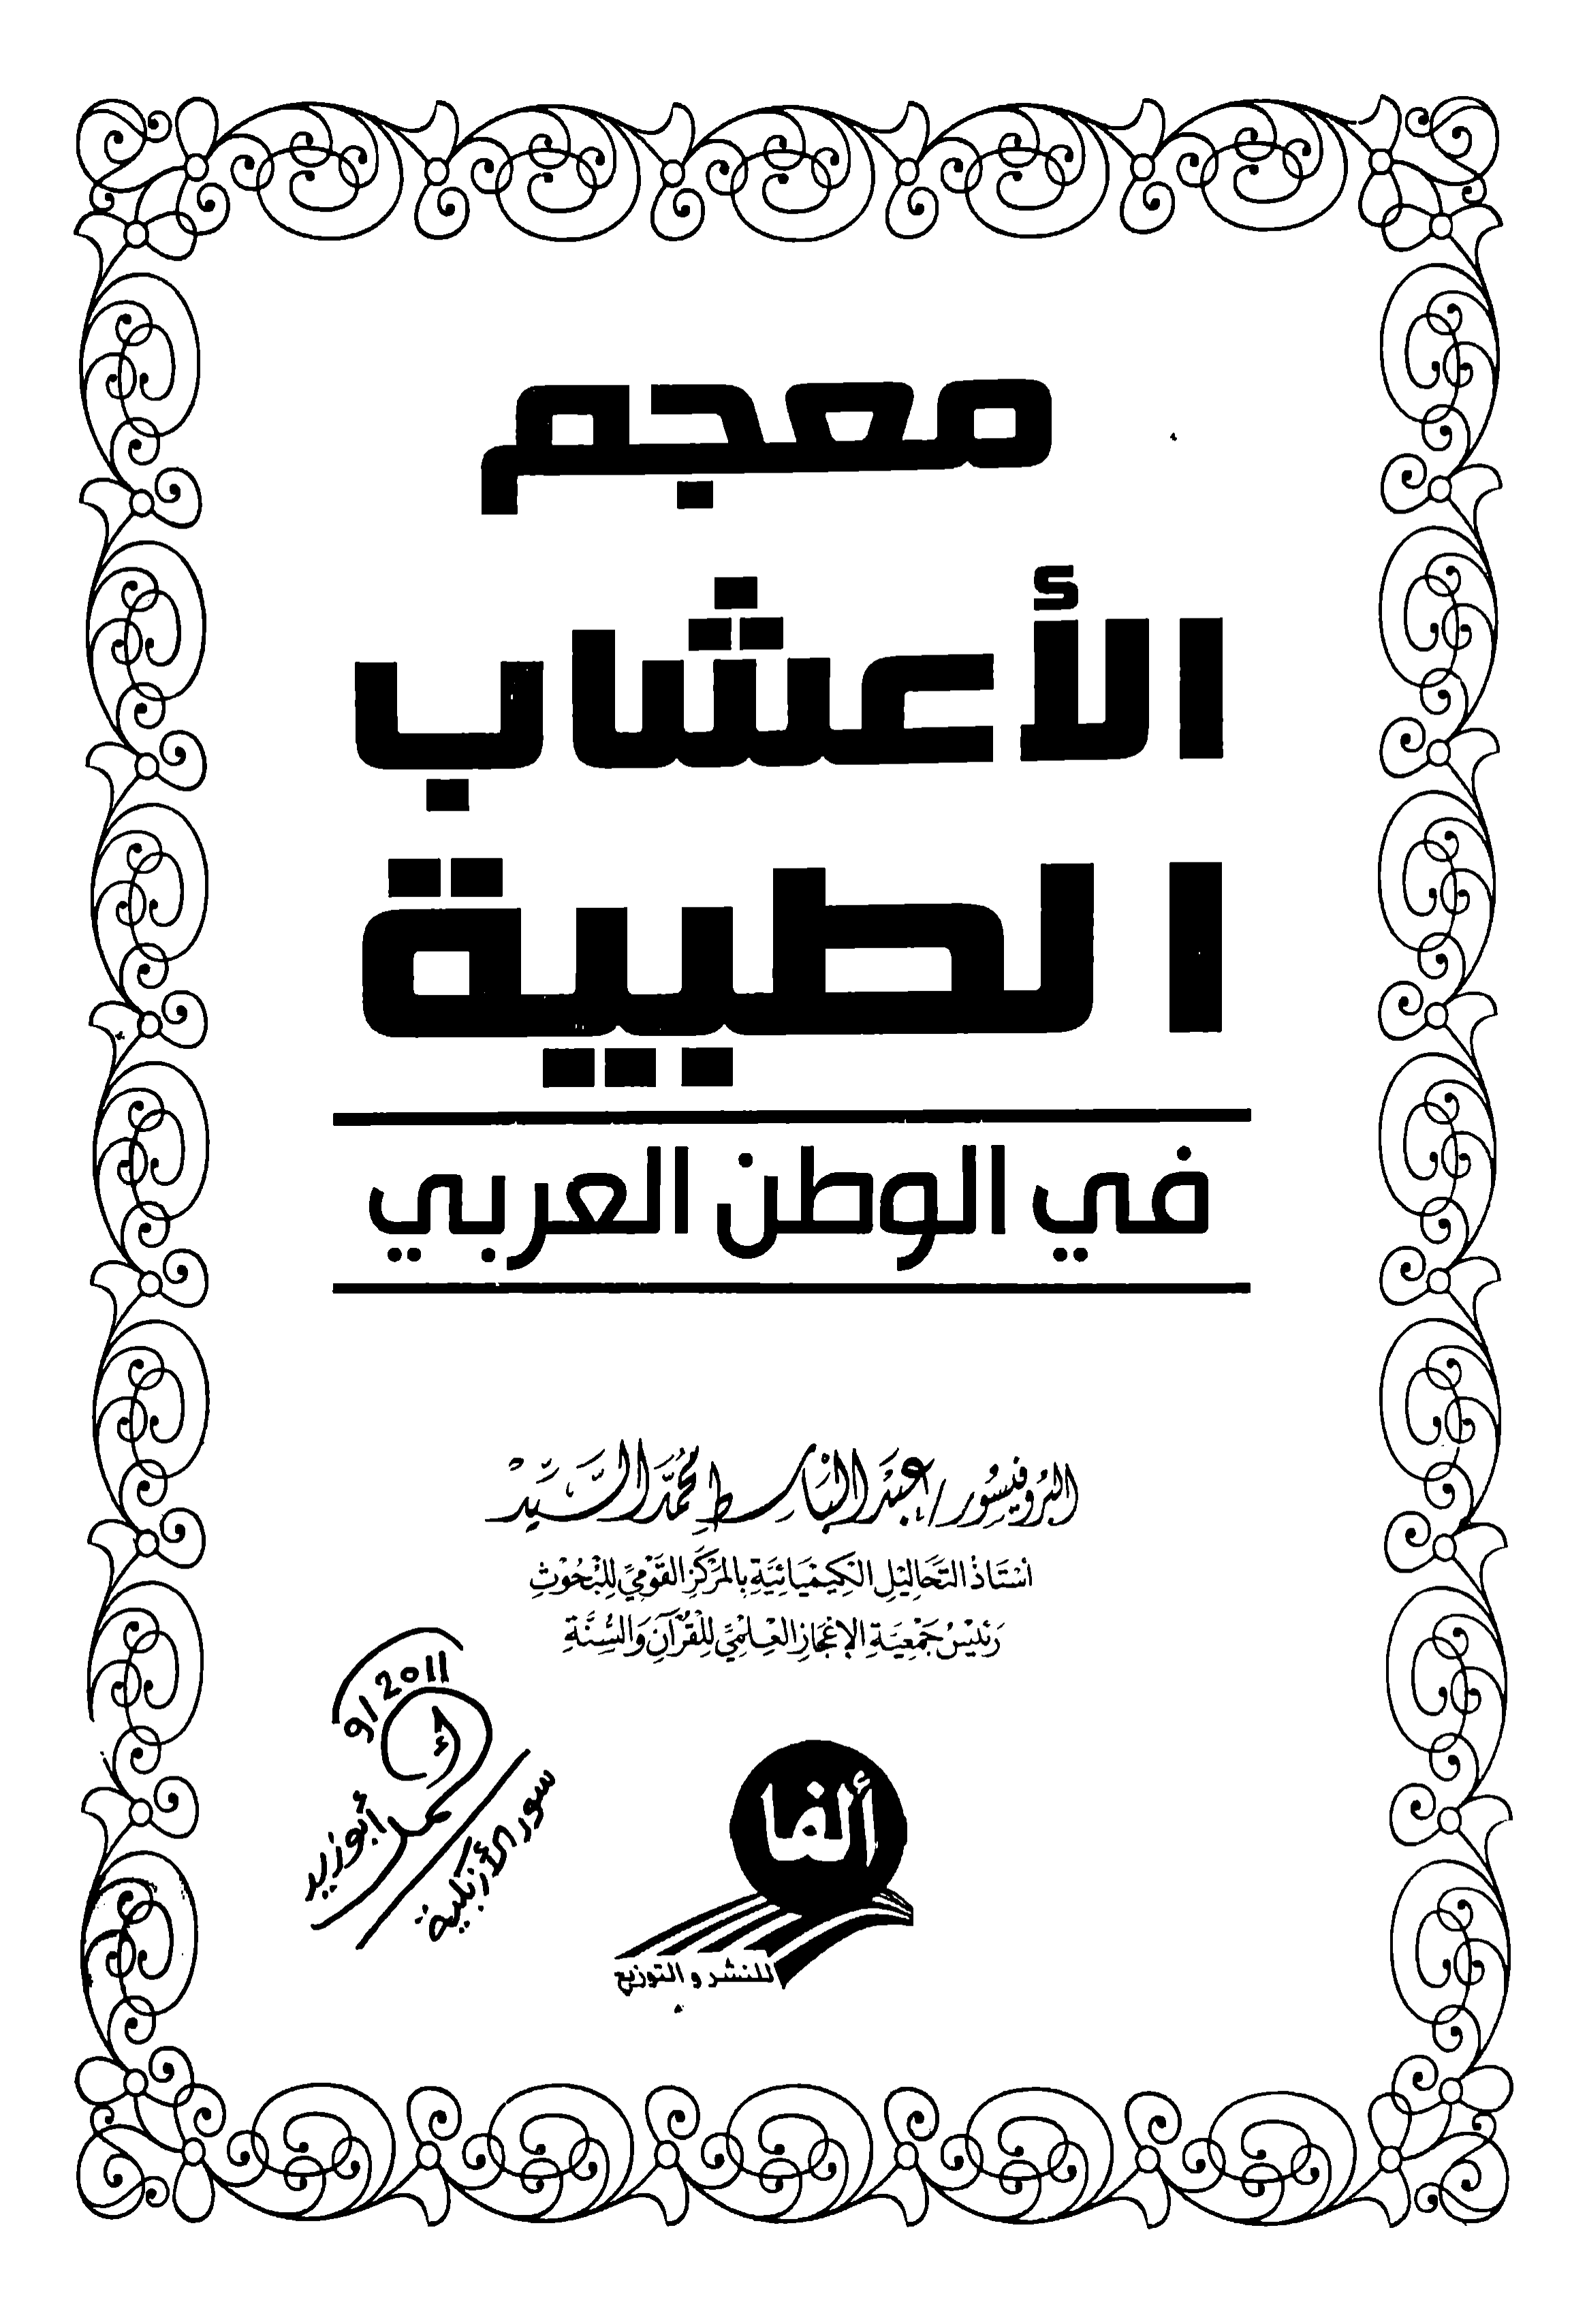 معجم
الأعشاب
الطبية
في الوطن العربي
البُروفيسُور/عَبْدالبَاسِط مُحَمَّد السَّيِّدْ
أسْتَاذُ التَّحَالِيْلِ الكِيمْيَائِيَّةِ بِالمَرْكَزِ القَوْمِيِّ لِلْبُحُوْثِ
رَئِيْسُ جَمْعِيَّةِ الإِعْجَازِ العِلْمِيِّ لِلْقُرْآنِ وَالسُّنَّةِ
9/2011
أبوزيد
سور الأزبكية
ألفا
للنشر و التوزيع